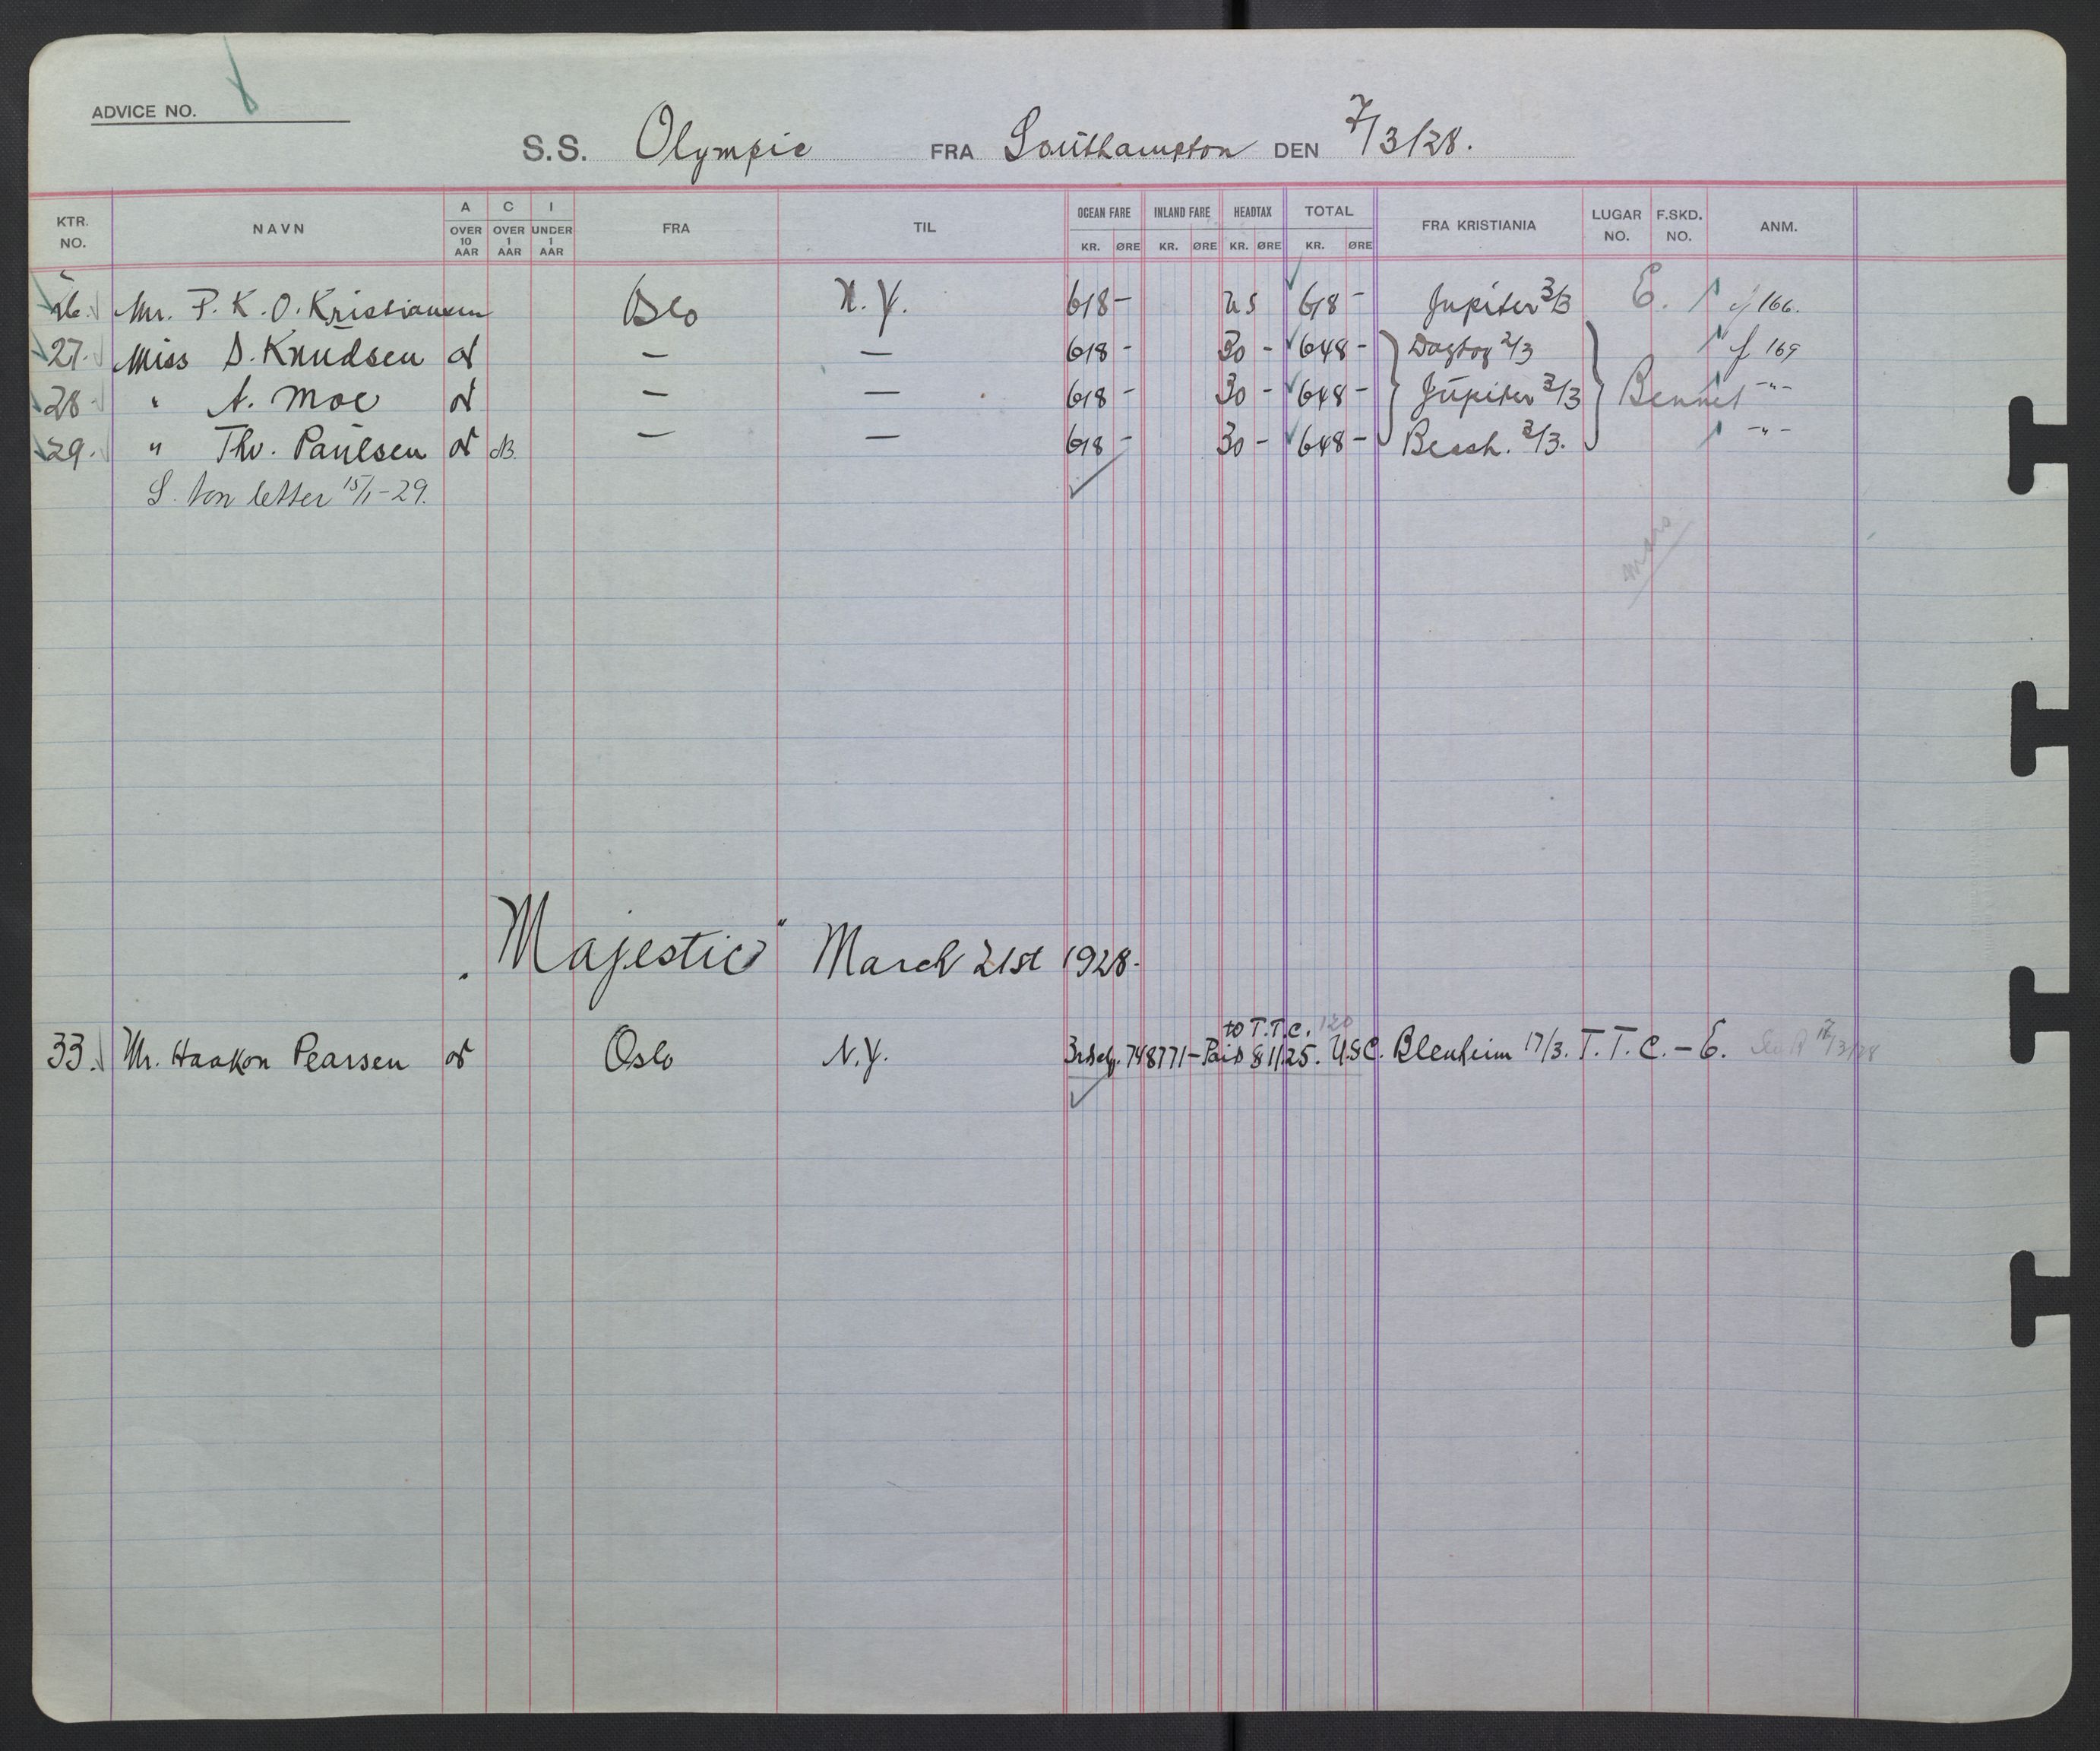 ADVICE NO.
S.S. Olympic FRA Southampton DEN 7/3/28.
KTR. NO. NAVN A OVER 10 AAR C OVER 1 AAR I UNDER 1 AAR FRA TIL OCEAN FARE KR. ØRE INLAND FARE KR. ØRE HEADTAX KR. ØRE TOTAL KR. ØRE FRA KRISTIANIA LUGAR NO. F.SKD. NO. ANM.
26. Mr. P. K. O. Kristiansen Oslo N.Y. 618 - US 618 - Jupiter 3/3 E. 166.
27. Miss S. Knudsen — — 618 - 30 - 648 - Dagtog 2/3 169
28 " A. Moe — — 618 - 30 - 648 - Jupiter 3/3 Bennet -"-
29. " Thv. Paulsen — — 618 - 30 - 648 - Bessh. 3/3. -"-
S. ton letter 15/1-29.
mars
„Majestic" March 21st 1928.
to T.T.C. 120
33. Mr. Haakon Pearsen Oslo N.Y. 748771 - Paid $ 1125. USC. Blenheim 17/3. T.T.C. - E. 17/3/28